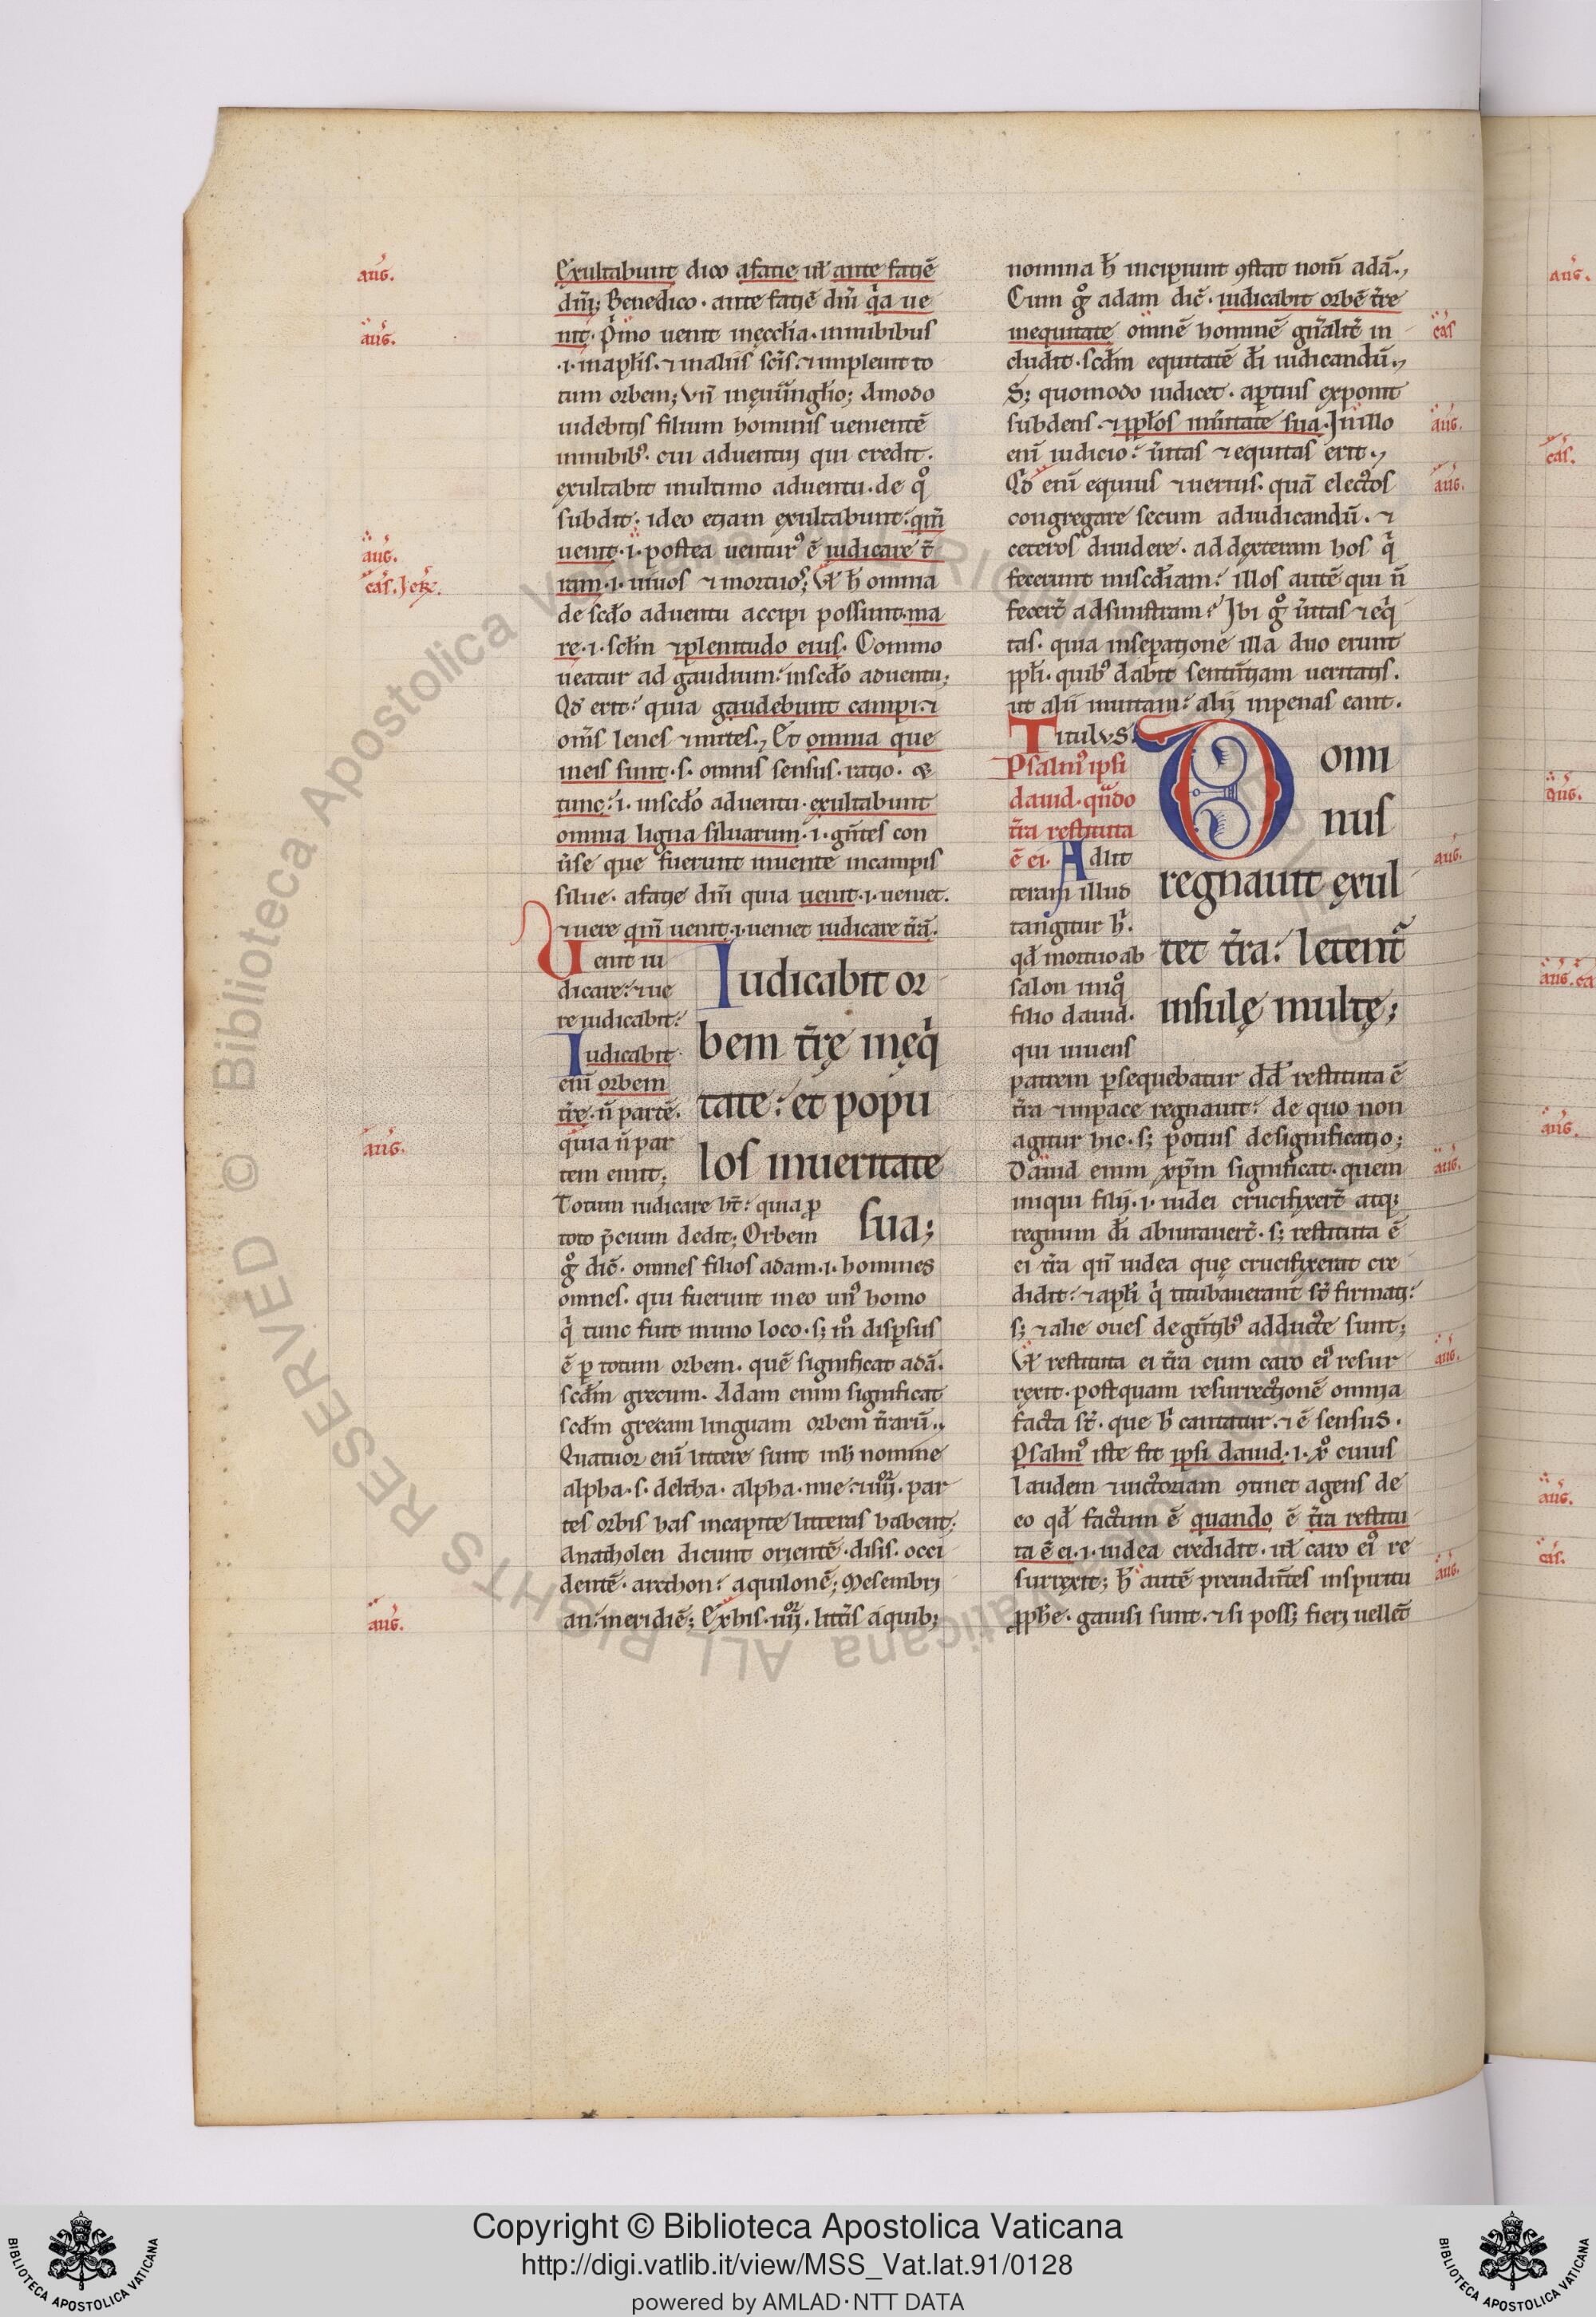 Exultabunt dico a facie ul̄ ante faciē
dn̄i; Benedico. ante faciē dn̄i qͥa ue
nit. Pͥmo uenit in ęccl̄ia. in nubibus
.i. in apl̄is. ⁊ in aliis sc̄is. ⁊ impleuit to
tum orbem; Vn̄ in ęuangl̄io; Amodo
uidebitis filium hominis uenientē
in nubibꝰ. cui aduentui qui credit.
exultabit in ultimo aduentu. de qͦ
subdit. ideo etiam exultabunt. qm̄
uenit. i. postea uenturꝰ ē iudicare t̄
ram. i. uiuos ⁊ mortuos; Vl̄ h̄ omnia
de scd̄o aduentu accipi possunt. ma
re. i. scl̄m ⁊ plenitudo eius. Commo
ueatur ad gaudium. in scd̄o aduentu;
Qd̄ erit. quia gaudebunt campi. ⁊
om̄s leues ⁊ mites., Et omnia que
in eis sunt. s. omnis sensus. ratio.
tunc. i. in scd̄o aduentu. exultabunt
omnia ligna siluarum. i. gn̄tes con
ūse que fuerunt in uente in campis
silue. a facie dn̄i quia uenit. i. ueniet.
⁊ uere qm̄ uenit. i. ueniet iudicare t̄rā.
Uenit iu
dicare. ⁊ ue
re iudicabit.
Iudicabit
enī orbem
t̄re. n̄ partē.
quia n̄ par
tem emit;
Iudicabit or
bem t̄rę in ęqͥ
tate. et popu
los in ueritate
sua;
Totum iudicare ht̄. quia ꝓ
toto p̄cium dedit; Orbem
gͦ dic̄. omnes filios adam. i. homines
omnes. qui fuerunt in eo unꝰ homo
qͥ tunc fuit in uno loco. s; mͦ dispsus
ē ꝑ totum orbem. quē significat adā.
scd̄m grecum. Adam enim significat
scd̄m grecam linguam orbem t̄rarū.,
Quatuor enī littere sunt in h nomine
alpha. s. deltha. alpha. mie. ⁊ iiii. par
tes orbis has in capite litteras habent;
Anatholen dicunt orientē. disis. occi
dentē. arethon. aquilonē; Mesembri
an. meridiē; Ex his .iiii. litt̄is a quib;
nomina h̄ incipiunt ꝯstat nom̄ adā.,
Cum gͦ adam dic̄. iudicabit orbē t̄re
in equitate om̄nē hominē gn̄alit̄ in
cludit. scd̄m equitatē dī iudicandū.,
S; quomodo iudicet. aptius exponit
subdens. ⁊ ppl̄os in ūitate sua. In illo
enī iudicio. ūitas ⁊ equitas erit.,
Qd̄ enī equius ⁊ uerius. quā electos
congregare secum ad iudicandū. ⁊
ceteros diuidere. ad dexteram hos qͥ
fecerunt miscd̄iam. illos autē qui n̄
fecer̄t ad sinistram. Ibi gͦ ūitas ⁊ eqͥ
tas. quia in sepatione illa duo erunt
ppl̄i. quibꝰ dabit sententiam ueritatis.
ut alii in uitam. alij in penas eant.
Titulus.
Psalmꝰ ipsi
dauid. qn̄do
t̄ra restituta
ē ei. Ad lit
teram illud
tangitur h̄.
qd̄ mortuo ab
salon iniqͦ
filio dauid.
qui uiuens
Domi
nus
regnauit exul
tet t̄ra. letent᷑
insulę multę;
patrem ꝑsequebatur dd̄ restituta ē
t̄ra ⁊ in pace regnauit. de quo non
agitur hic. s; potius de significatio;
Dauid enim xp̄m significat. quem
iniqui filij. i. iudei crucifixer̄t atq;
regnum dī abiurauer̄t. s; restituta ē
ei t̄ra qn̄ iudea quę crucifixerat cre
didit. ⁊ apl̄i qͥ titubauerant st̄ firmati.
s; ⁊ alie oues de gn̄tibꝰ adducte sunt;
Vl̄ restituta ei t̄ra cum caro eiꝰ resur
rexit. postquam resurrectionē omnia
facta st̄. que h̄ cantatur. ⁊ ē sensus.
Psalmꝰ iste fit ipsi dauid. i. xͦ cuius
laudem ⁊ uictoriam ꝯtinet agens de
eo qd̄ factum ē quando ē t̄ra restitu
ta ē ei. i. iudea credidit. ul̄ caro eiꝰ re
surrexit; h̄ autē preuidn̄tes in spiritu
pph̄e. gauisi sunt. ⁊ si poss; fieri uellēt
aug.
aug.
aug.
cas. Jer.
aug.
aug.
cas
aug.
aug.
aug.
aug.
aug.
aug.
aug.
cas.
aug.
aug. ca
aug.
aug.
cas.
Biblioteca Apostolica Vaticana ALL RIGHTS RESERVED ©
Copyright © Biblioteca Apostolica Vaticana
http://digi.vatlib.it/view/MSS_Vat.lat.91/0128
powered by AMLAD·NTT DATA
BIBLIOTECA APOSTOLICA VATICANA
BIBLIOTECA APOSTOLICA VATICANA